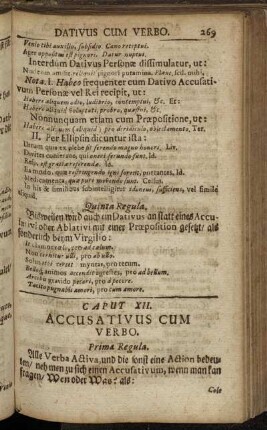 DATIVUS CUM VERBO. 269
Venio tibi auxilio, subsidio. Cano receptui.
pignori. Datur nuptui.
Interdum Dativus Personæ dissimulatur, ut:
relinquit pignori putamina. Plaut. scil. mihi,
Nota. 1. Habeo frequenter cum Dativo Accusati-
vum Personæ vel Rei recipit, ut:
Habere aliquem odio, ludibrio, contemptui, &c. Et:
Habere aliquid voluptati, probro, quæstui, &c.
Nonnunquam etiam cum Præpositione, ut:
Habere aliquem (aliquid) pro derisui, Ter.
II. Per Ellipsin dicuntur ista:
ex plebe sit ferendo magno honori, Liv.
Divites qui oneri ferendo sunt, Id.
Id.
ut restinguendo igni forent, portantes, Id.
Medicamenta, quæ puri movendo sunt. Celsus.
In his & similibus subintelligitur idoneus, sufficiens, vel simile
aliquid.
Quinta Regula.
Bißweilen wird auch ein Dativus an statt eines Accu-
sativi oder Ablativi mit einer Præposition gesetzt/ als
sonderlich beym Virgilio:
It clamor cœlo, pro ad cœlum.
Non ulli, pro ab ullo.
pro rerum.
Bello animos accendit agrestes, pro ad bellum.
grandia petori, pro à petere.
Tacito pugnabis amori, pro cum amore.
CAPUT XII.
ACCUSATIVUS CUM
VERBO.
Prima Regula.
Alle Verba Activa, und die sonst eine Action bedeu-
ten/ nehmen zu sich einen Accusativum, wenn man kan
fragen/ Wen oder Was? als:
Cole